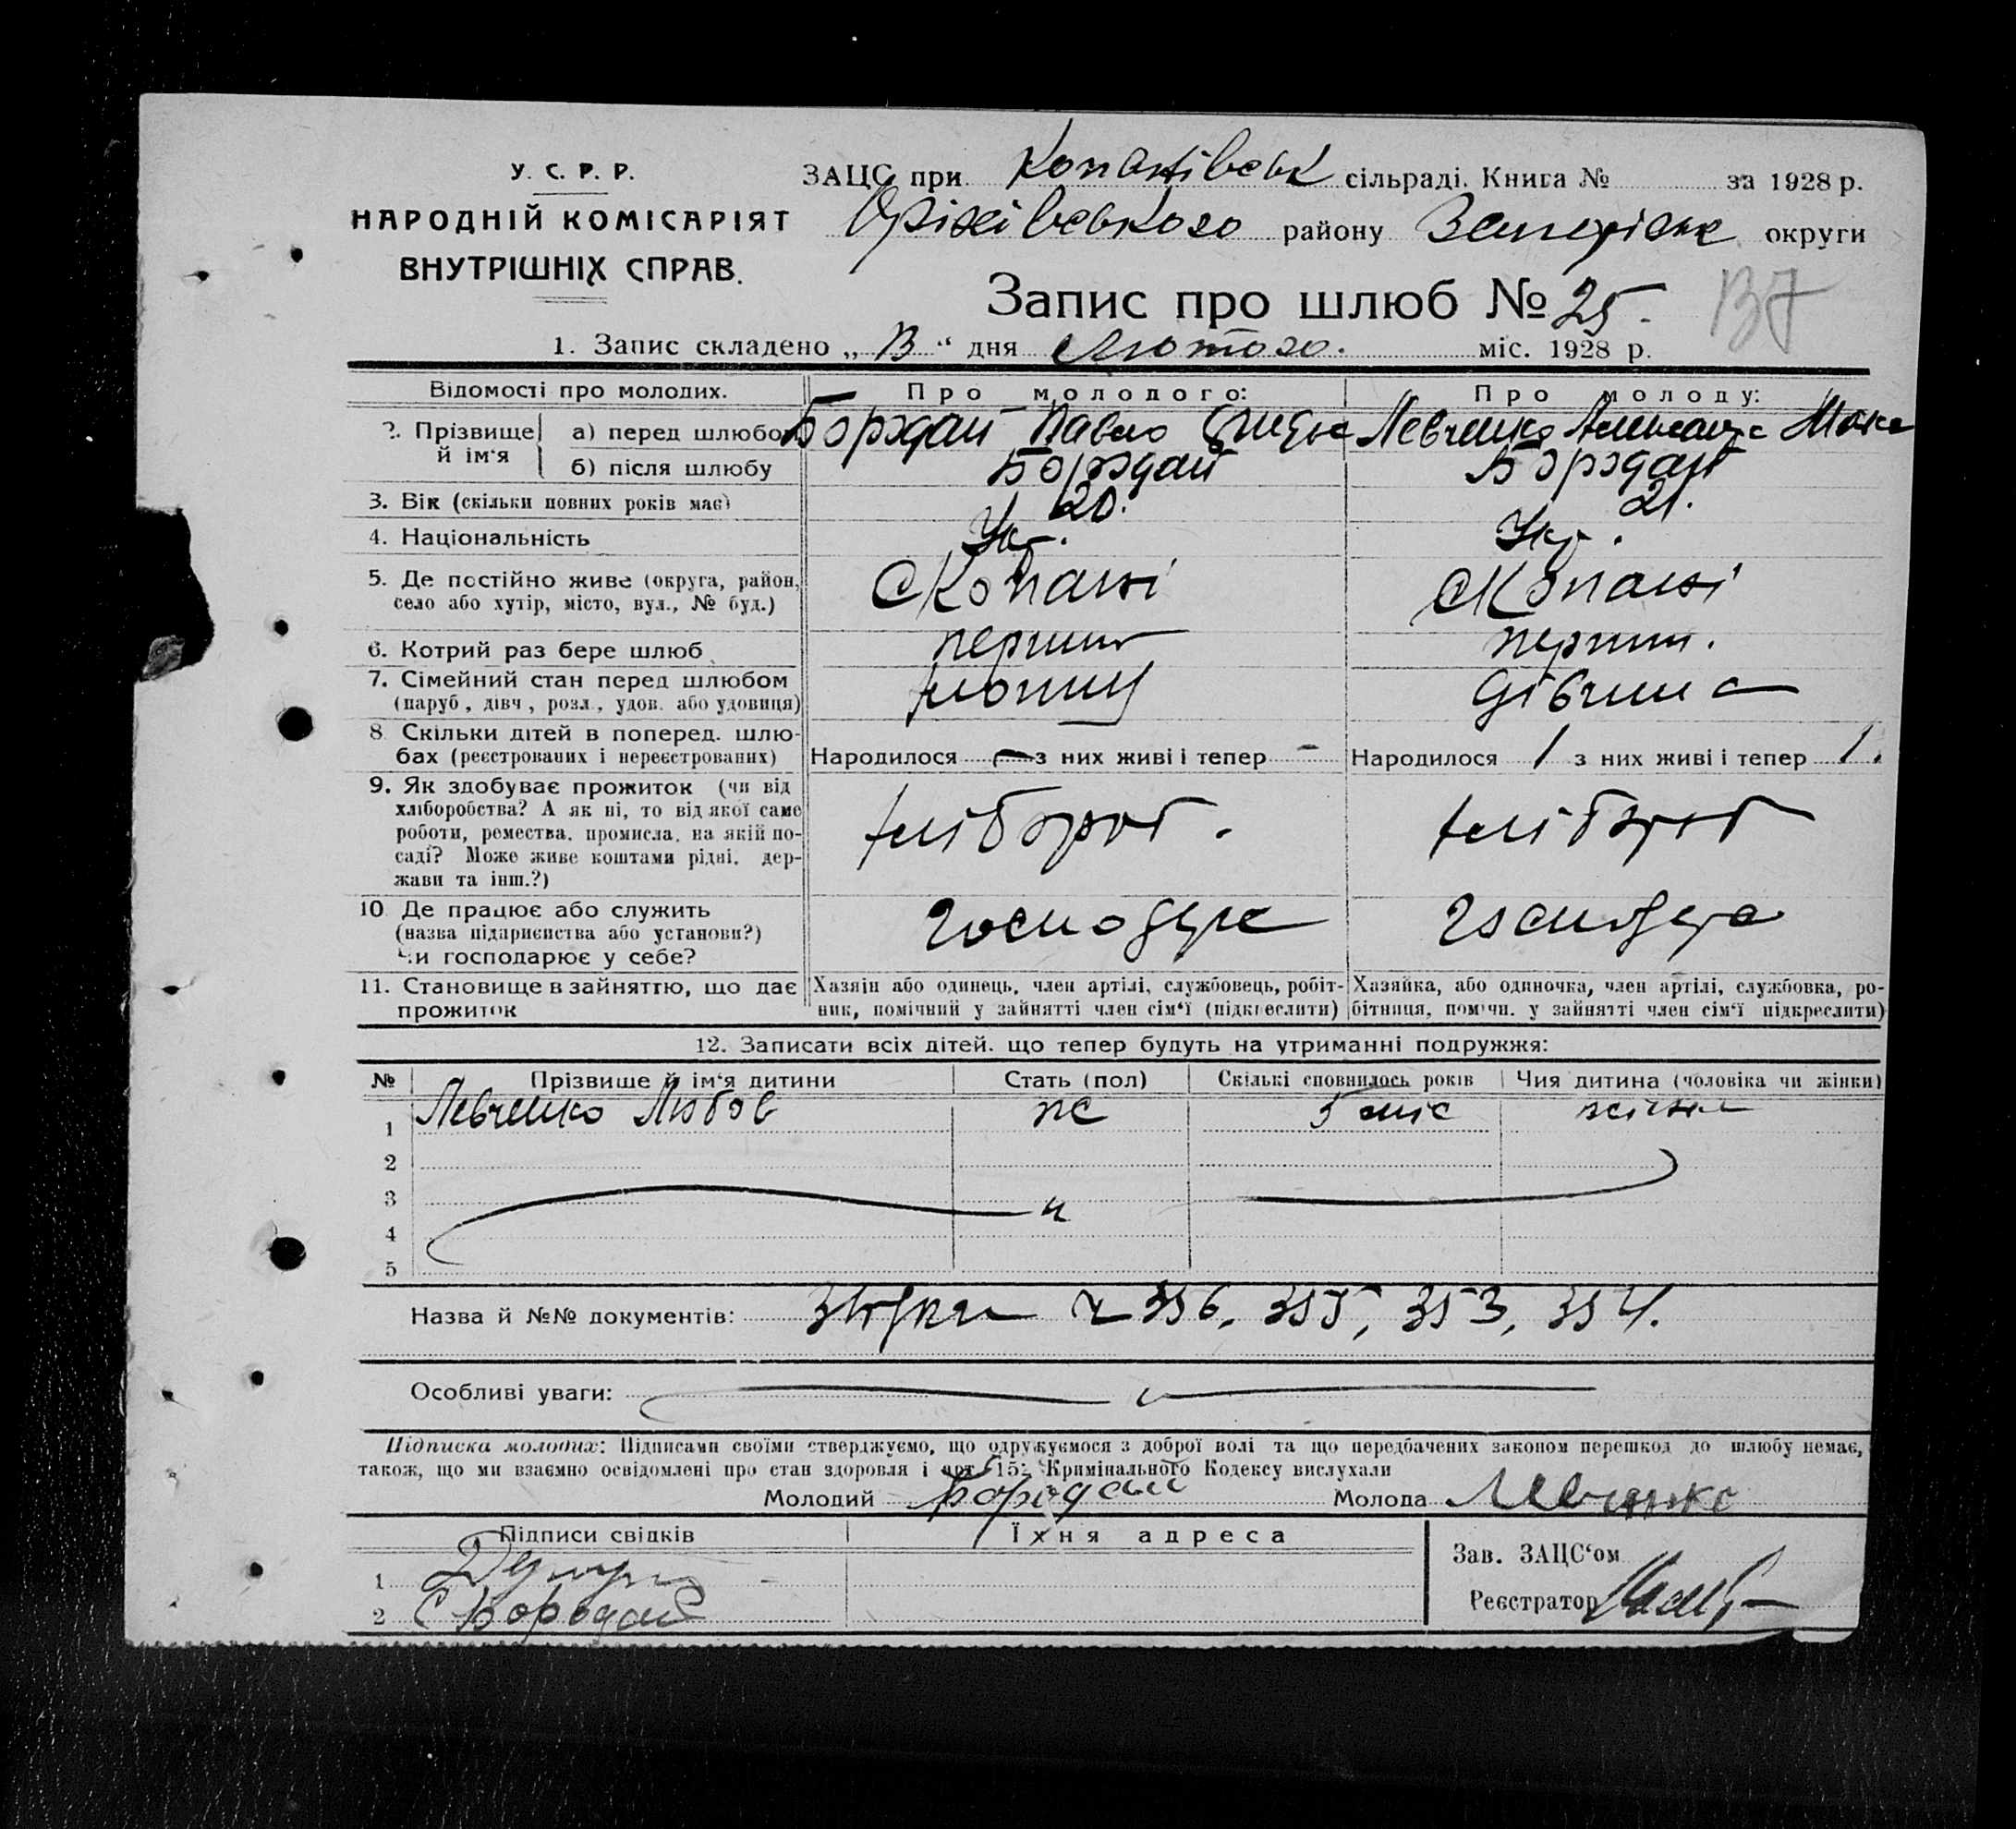 У. С. Р. Р.
НАРОДНІЙ КОМІСАРІЯТ
ВНУТРІШНІХ СПРАВ.
ЗАЦС при Копанівськ сільраді. Книга № за 1928 р.
Оріхівського району Запоріськ округи
Запис про шлюб № 25.
1. Запис складено „ 13 “ дня Лютого. міс. 1928 р.
Відомості про молодих. Про молодого: Про молоду:
2. Прізвище й ім‘я а) перед шлюбом Бородай Павло Левченко Александра
б) після шлюбу Бородай Бородай
3. Вік (скільки повних років має) 20. 21.
4. Національність Укр. Укр.
5. Де постійно живе (округа, район, село або хутір, місто, вул., № буд.) с Копані с Копані
6. Котрий раз бере шлюб перший перший.
7. Сімейний стан перед шлюбом (паруб, дівч, розл., удов. або удовиця) дівчина
8. Скільки дітей в поперед. шлюбах (реєстрованих і нереєстрованих) Народилося — з них живі і тепер — Народилося 1 з них живі і тепер 1.
9. Як здобуває прожиток (чи від хліборобства? А як ні, то від якої саме роботи, ремества, промисла, на якій посаді? Може живе коштами рідні, держави та інш.?) хлібороб. хлібороб
10. Де працює або служить (назва підприєнства або установи?) Чи господарює у себе? господарє господарє
11. Становище в зайняттю, що дає прожиток Хазяін або одинець, член артілі, службовець, робітник, помічний у зайнятті член сім‘ї (підкреслити) Хазяйка, або одиночка, член артілі, службовка, робітниця, помічн. у зайнятті член сім‘ї підкреслити)
12. Записати всіх дітей. що тепер будуть на утриманні подружжя:
№ Прізвише й ім‘я дитини Стать (пол) Скількі сповнилось років Чия дитина (чоловіка чи жінки)
1 Левченко Любов ж 5 міс жінки
2
3
4
5
Назва й №№ документів: 356, 355, 353, 354.
Особливі уваги:
Підписка молодих: Підписами своїми стверджуємо, що одружуємося з доброї волі та що передбачених законом перешкод до шлюбу немає,
також, що ми взаємно освідомлені про стан здоровля і арт. 15 Кримінального Кодексу вислухали
Молодий Бородай Молода Левченко
Підписи свідків Їхня адреса
1
2 Бородай
Зав. ЗАЦС‘ом
Реєстратор